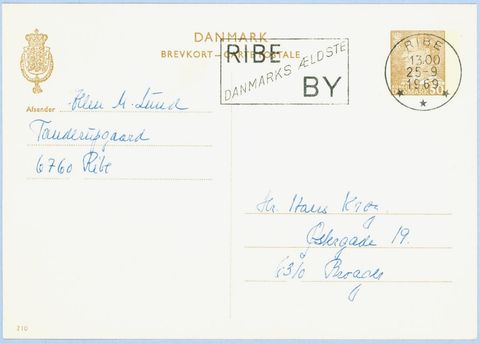 DANMARK
BREVKORT - CARTE POSTALE
RIBE
DANMARKS ÆLDSTE
BY
RIBE
13.00
25-9
1969
Afsender
M. Lund
Tanderupgaard
6760 Ribe
Hr. Hans Krog
Østergade 19.
6310 Broager
210